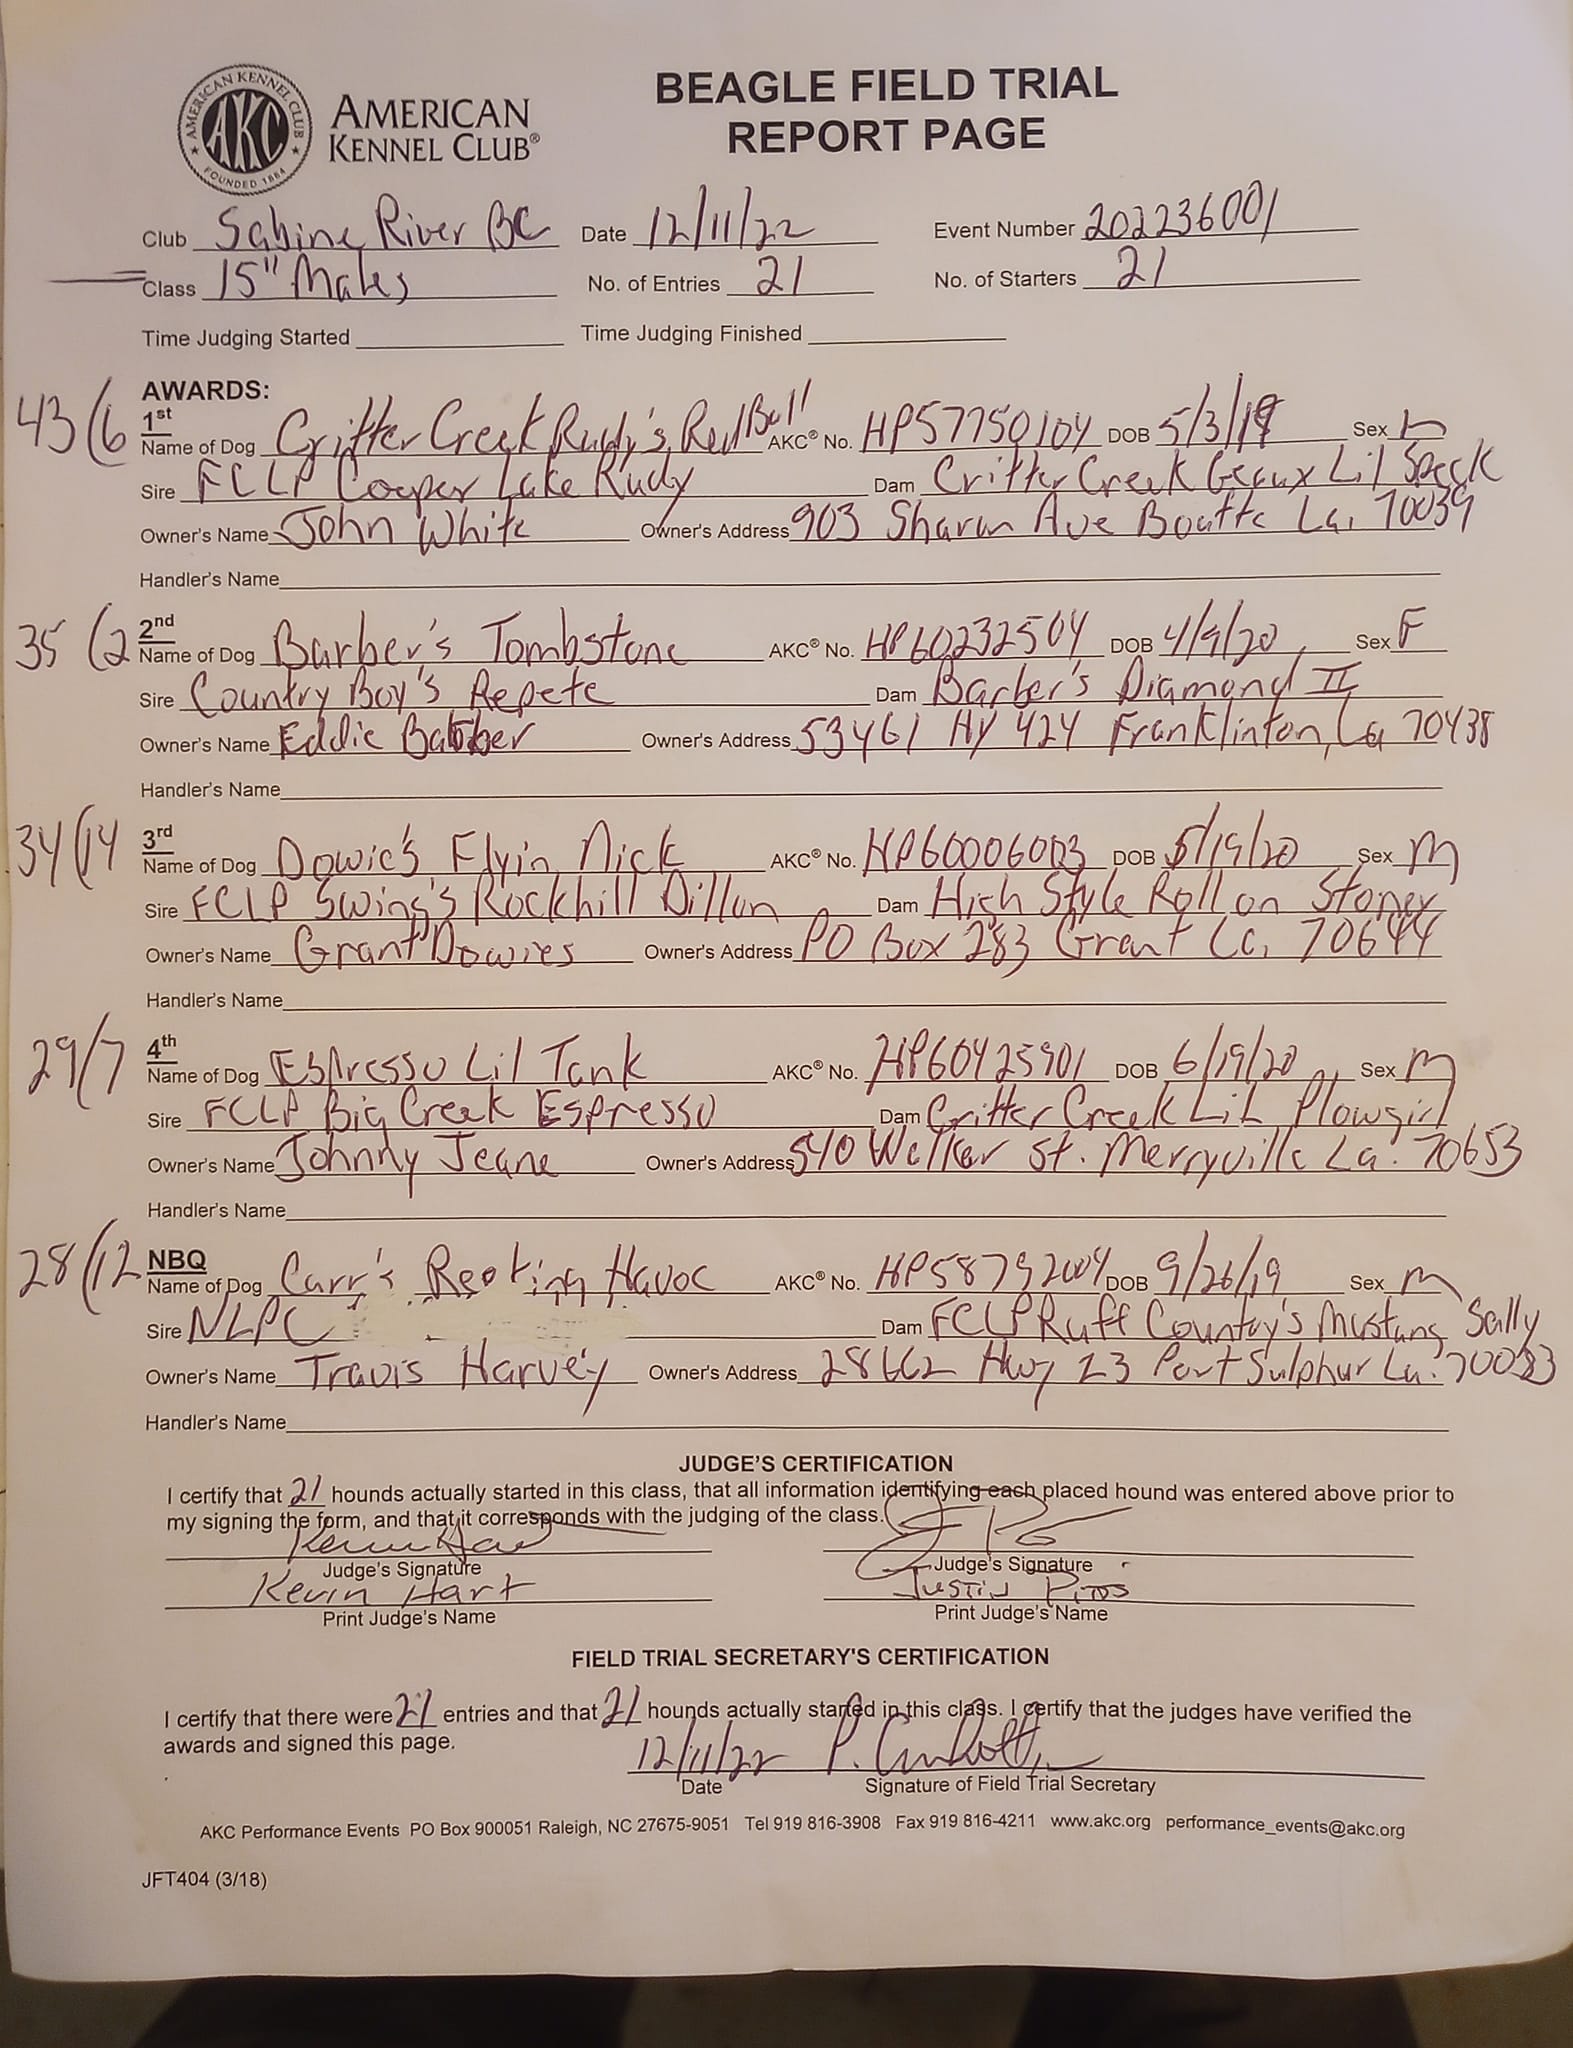 AMERICAN KENNEL CLUB
AKC
FOUNDED 1884
AMERICAN
KENNEL CLUB®
BEAGLE FIELD TRIAL
REPORT PAGE
Club Sabine River BC Date 12/11/22 Event Number 202236001
Class 15" Males No. of Entries 21 No. of Starters 21
Time Judging Started Time Judging Finished
AWARDS:
43(6 1st
Name of Dog Critter Creek Rudy's Red Bull AKC® No. HP57750104 DOB 5/3/19 Sex m
Sire FCLP Cooper Lake Rudy Dam Critter Creek Geaux Lil Speck
Owner's Name John White Owner's Address 903 Sharon Ave Boutte La. 70039
Handler's Name
35 (2 2nd
Name of Dog Barber's Tombstone AKC® No. HP60232504 DOB 4/9/20 Sex F
Sire Country Boy's Repete Dam Barber's Diamond II
Owner's Name Eddie Barber Owner's Address 53461 Hy 424 Franklinton, La 70438
Handler's Name
34(14 3rd
Name of Dog Dowie's Flyin Nick AKC® No. HP60006003 DOB 5/19/20 Sex M
Sire FCLP Swing's Rockhill Dillon Dam High Style Roll on Stoney
Owner's Name Grant Dowies Owner's Address PO Box 283 Grant La, 70644
Handler's Name
29/7 4th
Name of Dog Espresso Lil Tank AKC® No. HP60425901 DOB 6/19/20 Sex M
Sire FCLP Big Creek Espresso Dam Critter Creek LiL Plowgirl
Owner's Name Johnny Jeane Owner's Address 540 Walker St. Merryville La. 70653
Handler's Name
28/12 NBQ
Name of Dog Carr's Reoking Havoc AKC® No. HP58792004 DOB 9/26/19 Sex M
Sire NLPC Dam FCLP Ruff Country's Mustang Sally
Owner's Name Travis Harvey Owner's Address 28662 Hwy 23 Port Sulphur La. 70083
Handler's Name
JUDGE'S CERTIFICATION
I certify that 21 hounds actually started in this class, that all information identifying each placed hound was entered above prior to
my signing the form, and that it corresponds with the judging of the class.
Judge's Signature Judge's Signature
Kevin Hart Justin Pitts
Print Judge's Name Print Judge's Name
FIELD TRIAL SECRETARY'S CERTIFICATION
I certify that there were 21 entries and that 21 hounds actually started in this class. I certify that the judges have verified the
awards and signed this page.
12/11/22 P.
Date Signature of Field Trial Secretary
AKC Performance Events PO Box 900051 Raleigh, NC 27675-9051 Tel 919 816-3908 Fax 919 816-4211 www.akc.org performance_events@akc.org
JFT404 (3/18)